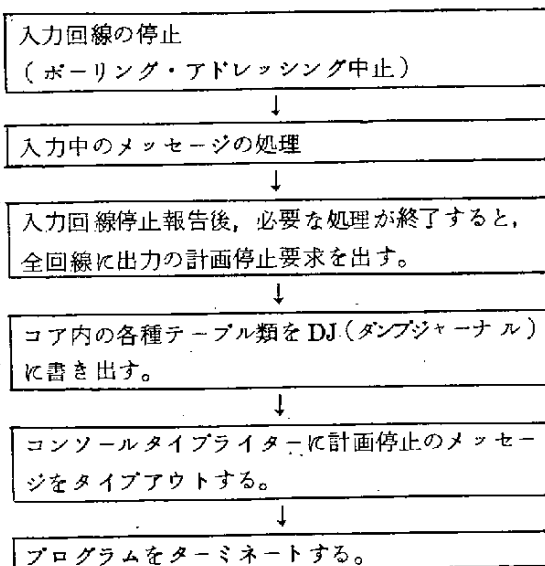 入力回線の停止
(ポーリング・アドレッシング中止)
↓
入力中のメッセージの処理
↓
入力回線停止報告後,必要な処理が終了すると,
全回線に出力の計画停止要求を出す。
↓
コア内の各種テーブル類をDJ(ダンプジャーナル)
に書き出す。
↓
コンソールタイプライターに計画停止のメッセー
ジをタイプアウトする。
↓
プログラムをターミネートする。